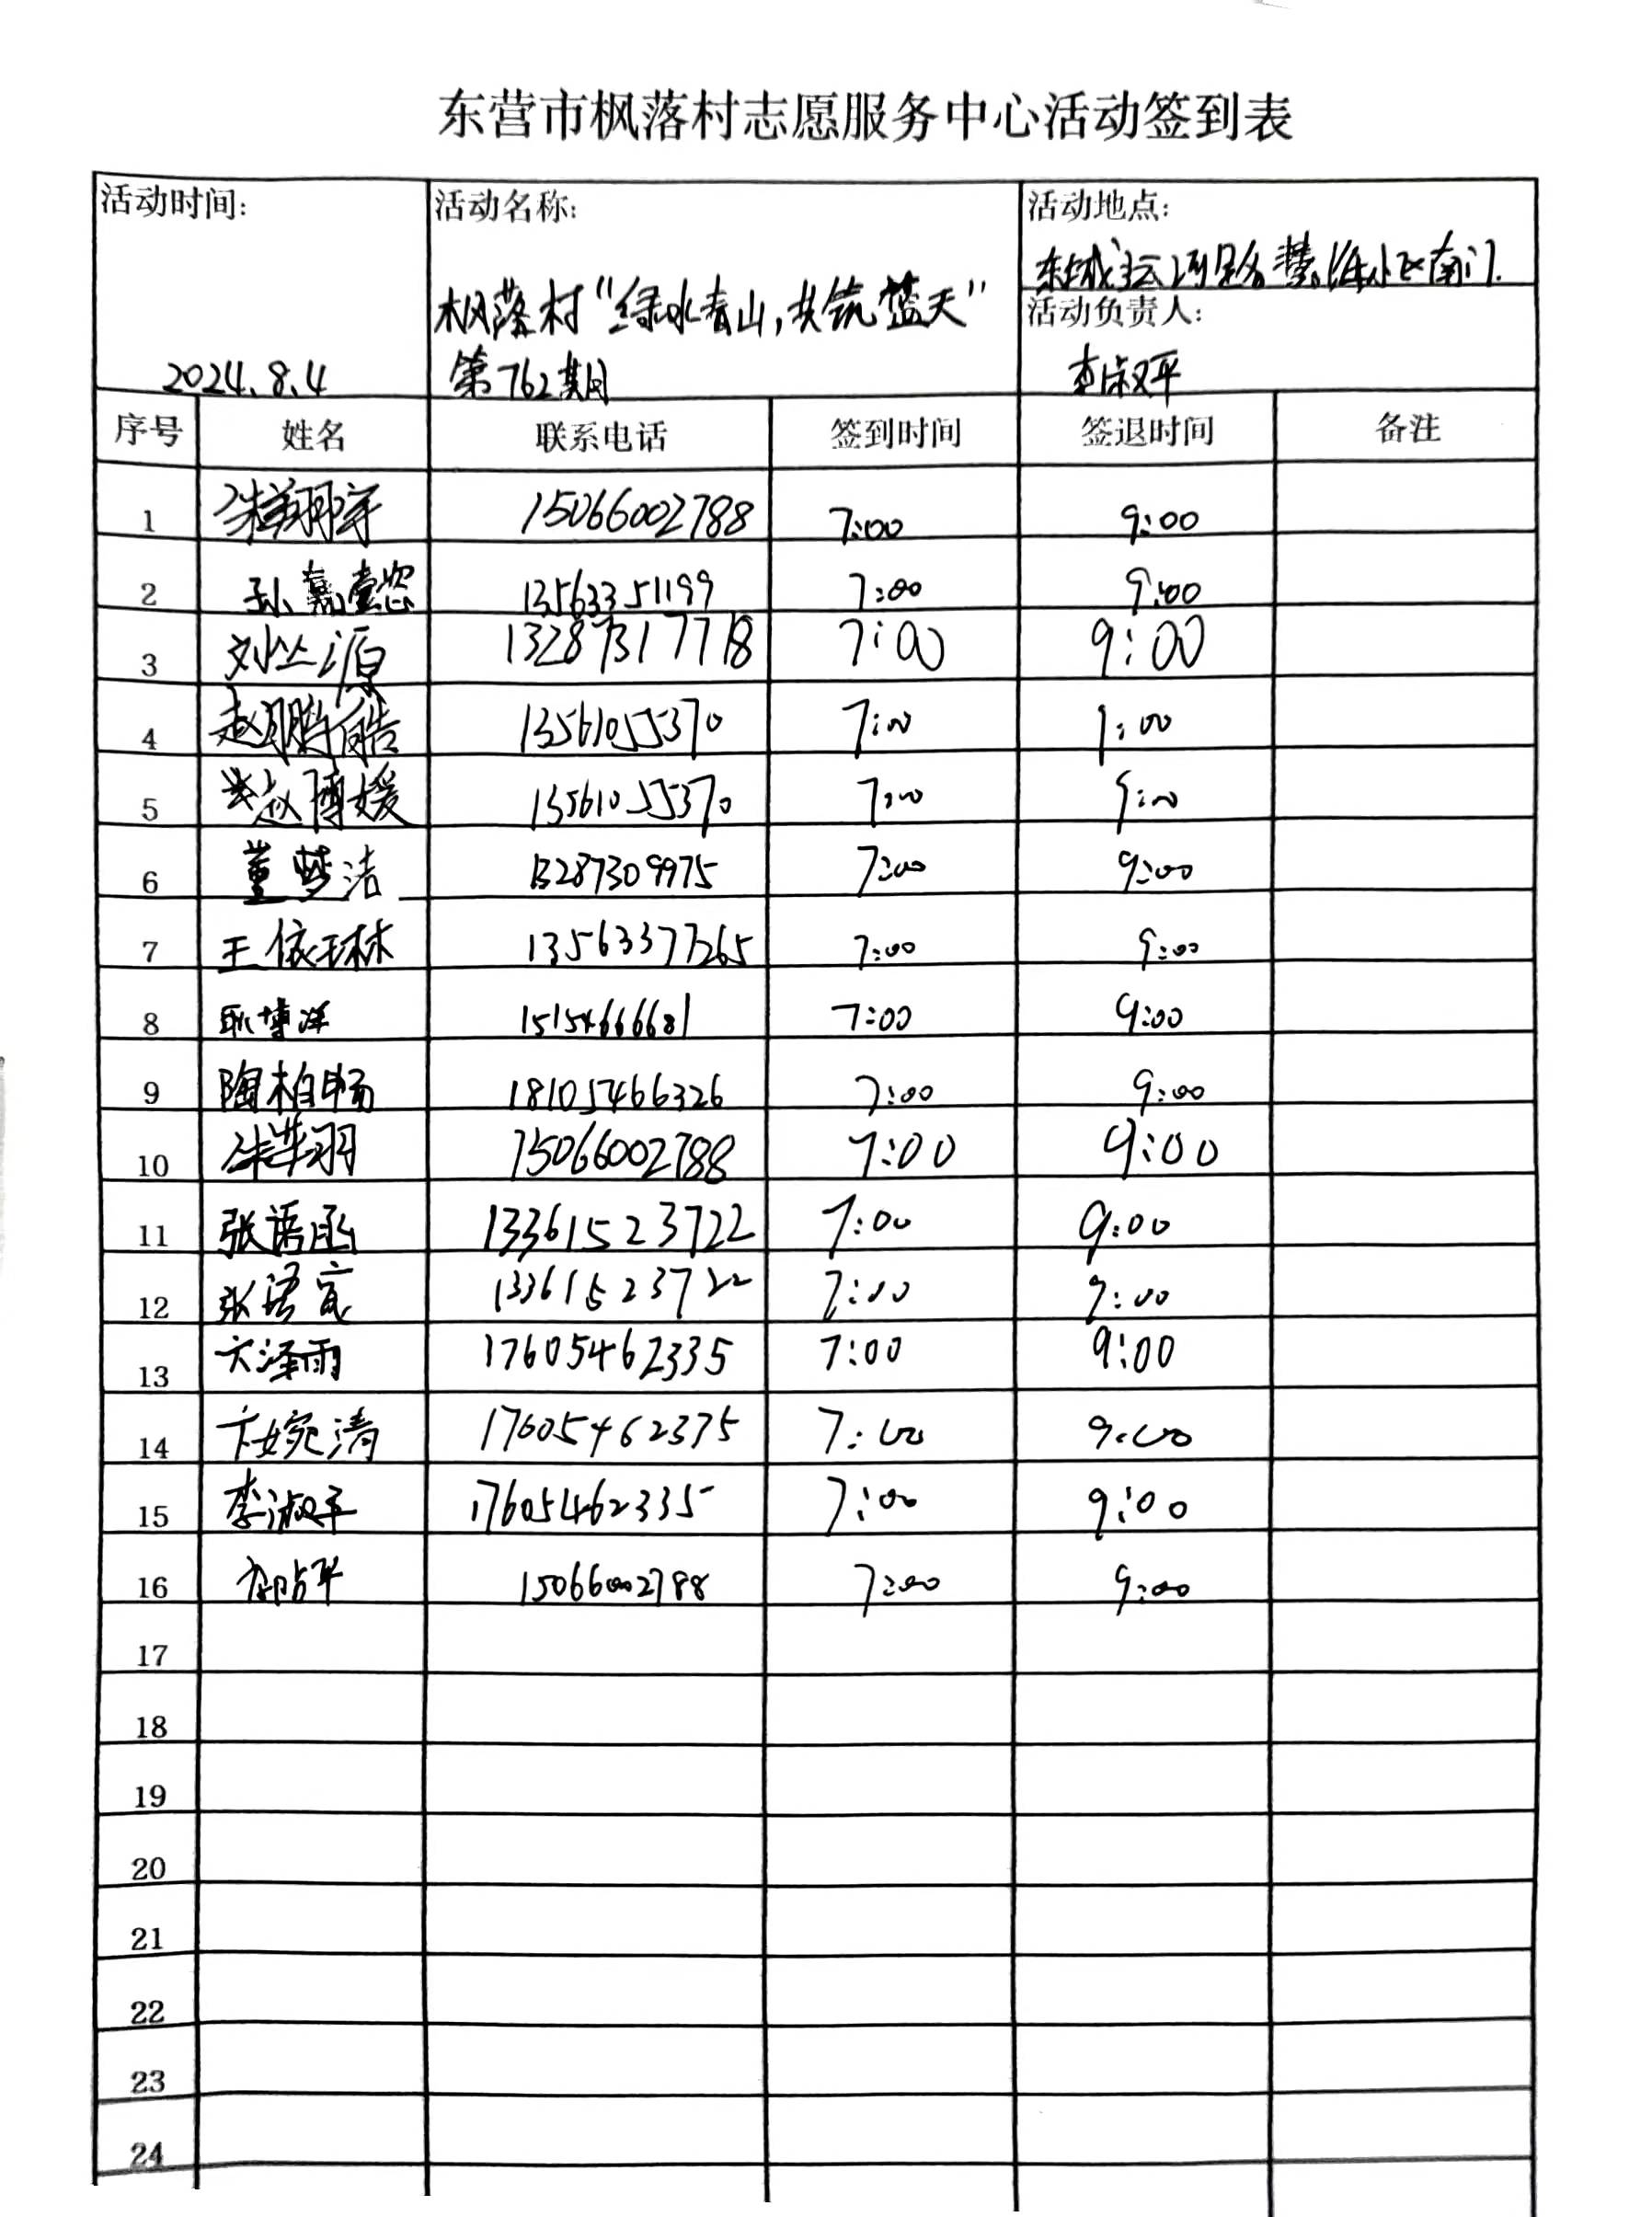 东营市枫落村志愿服务中心活动签到表
活动时间: 活动名称: 活动地点:
东城 南门
枫落村"绿水青山,共筑蓝天" 活动负责人:
2024.8.4 第762期 李淑平
序号 姓名 联系电话 签到时间 签退时间 备注
1 15066002788 7:00 9:00
2 孙嘉 13563351199 7:00 9:00
3 刘丛源 13287317718 7:00 9:00
4 赵鹏皓 13561055370 7:00 9:00
5 赵博媛 13561055370 7:00 9:00
6 董梦洁 13287309975 7:00 9:00
7 王依琳 13563377265 7:00 9:00
8 耿博洋 15154666681 7:00 9:00
9 陶柏畅 18105466326 7:00 9:00
10 15066002788 7:00 9:00
11 张语函 13361523722 7:00 9:00
12 张语宸 13361523722 7:00 9:00
13 卞泽雨 17605462335 7:00 9:00
14 卞婉清 17605462375 7:00 9:00
15 李淑平 17605462335 7:00 9:00
16 15066002788 7:00 9:00
17
18
19
20
21
22
23
24